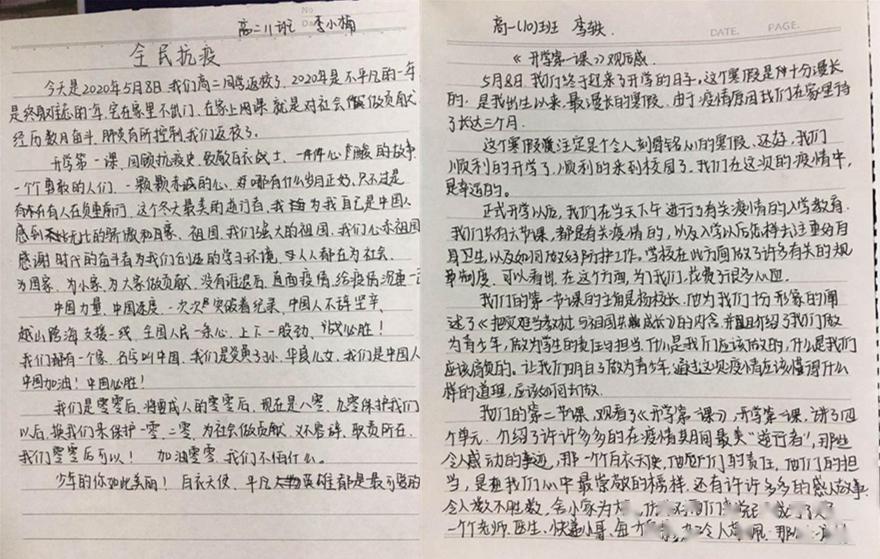 高二11班 李小楠
全民抗疫
今天是2020年5月8日,我们高二同学返校了,2020年是不平凡的一年
是终身难忘的一年,宅在家里不出门,在家上网课就是对社会做贡献
经历数月奋斗,肺炎有所控制,我们返校了。
开学第一课,回顾抗疫史,致敬白衣战士,一件件心酸的故事
一个勇敢的人们,一颗颗赤诚的心,哪有什么岁月正好,只不过是
有人在负重前行,这个冬天最美的逆行者,我为我自己是中国人
感到无比的骄傲和自豪、祖国,我们强大的祖国,我们心亦祖国
感谢时代的奋斗者为我们创造的学习环境,人人都在为社会、
为国家、为小家,为大家做贡献,没有谁退后,直面疫情,给疫情沉重一
中国力量,中国速度,一次次突破着纪录,中国人不辞艰辛、
越山跨海支援一线,全国人民一条心,上下一股劲,战必胜!
我们都有一个家,名字叫中国,我们是炎黄子孙,华夏儿女,我们是中国人
中国加油!中国必胜!
我们是零零后,将要成人的零零后,现在是八零,九零保护我们
以后,换我们来保护一零,二零,为社会做贡献,义不容辞,职责所在,
我们零零后可以! 加油零零,我们不怕什么。
少年的你如此美丽! 白衣天使,平凡英雄都是最可爱的
高一(10)班 李轶
DATE. PAGE.
《开学第一课》观后感
5月8日,我们终于赶来了开学的日子,这个寒假是十分漫长
的,是我出生以来,最漫长的寒假,由于疫情原因我们在家里待
了长达三个月.
这个寒假注定是个令人刻骨铭心的寒假、还好,我们
顺利的开学了,顺利的来到校园了,我们在这次的疫情中,
是幸运的。
正式开学以后,我们在当天下午进行了有关疫情的入学教育.
我们共有六节课,都是有关疫情的,以及入学以后怎样去注重的自
身卫生,以及如何做好防护工作。学校在此方面做了许多有关的规
章制度,可以看出,在这个方面,为了我们,花费了很多心血.
我们的第一节课的主角是杨校长,他为我们十分形象的阐
述了《把灾难当教材,与祖国共成长》的内容,并且介绍了我们做
为青少年,做为学生的责任与担当,什么是我们应该做的,什么是我们
应该肩负的。让我们明白了做为青少年,通过这次疫情应该懂得什么
样的道理,应该如何去做.
我们的第二节课,观看了《开学第一课》,开学第一课,讲了四
个单元,介绍了许许多多的在疫情其间最美"逆行者",那些
令人感动的事迹,那一个个白衣天使,他们的责任,他们的担
当,是我们心中最崇敬的榜样,还有许许多多的感人故事
令人数不胜数,舍小家为
一个个老师,医生、快递小哥